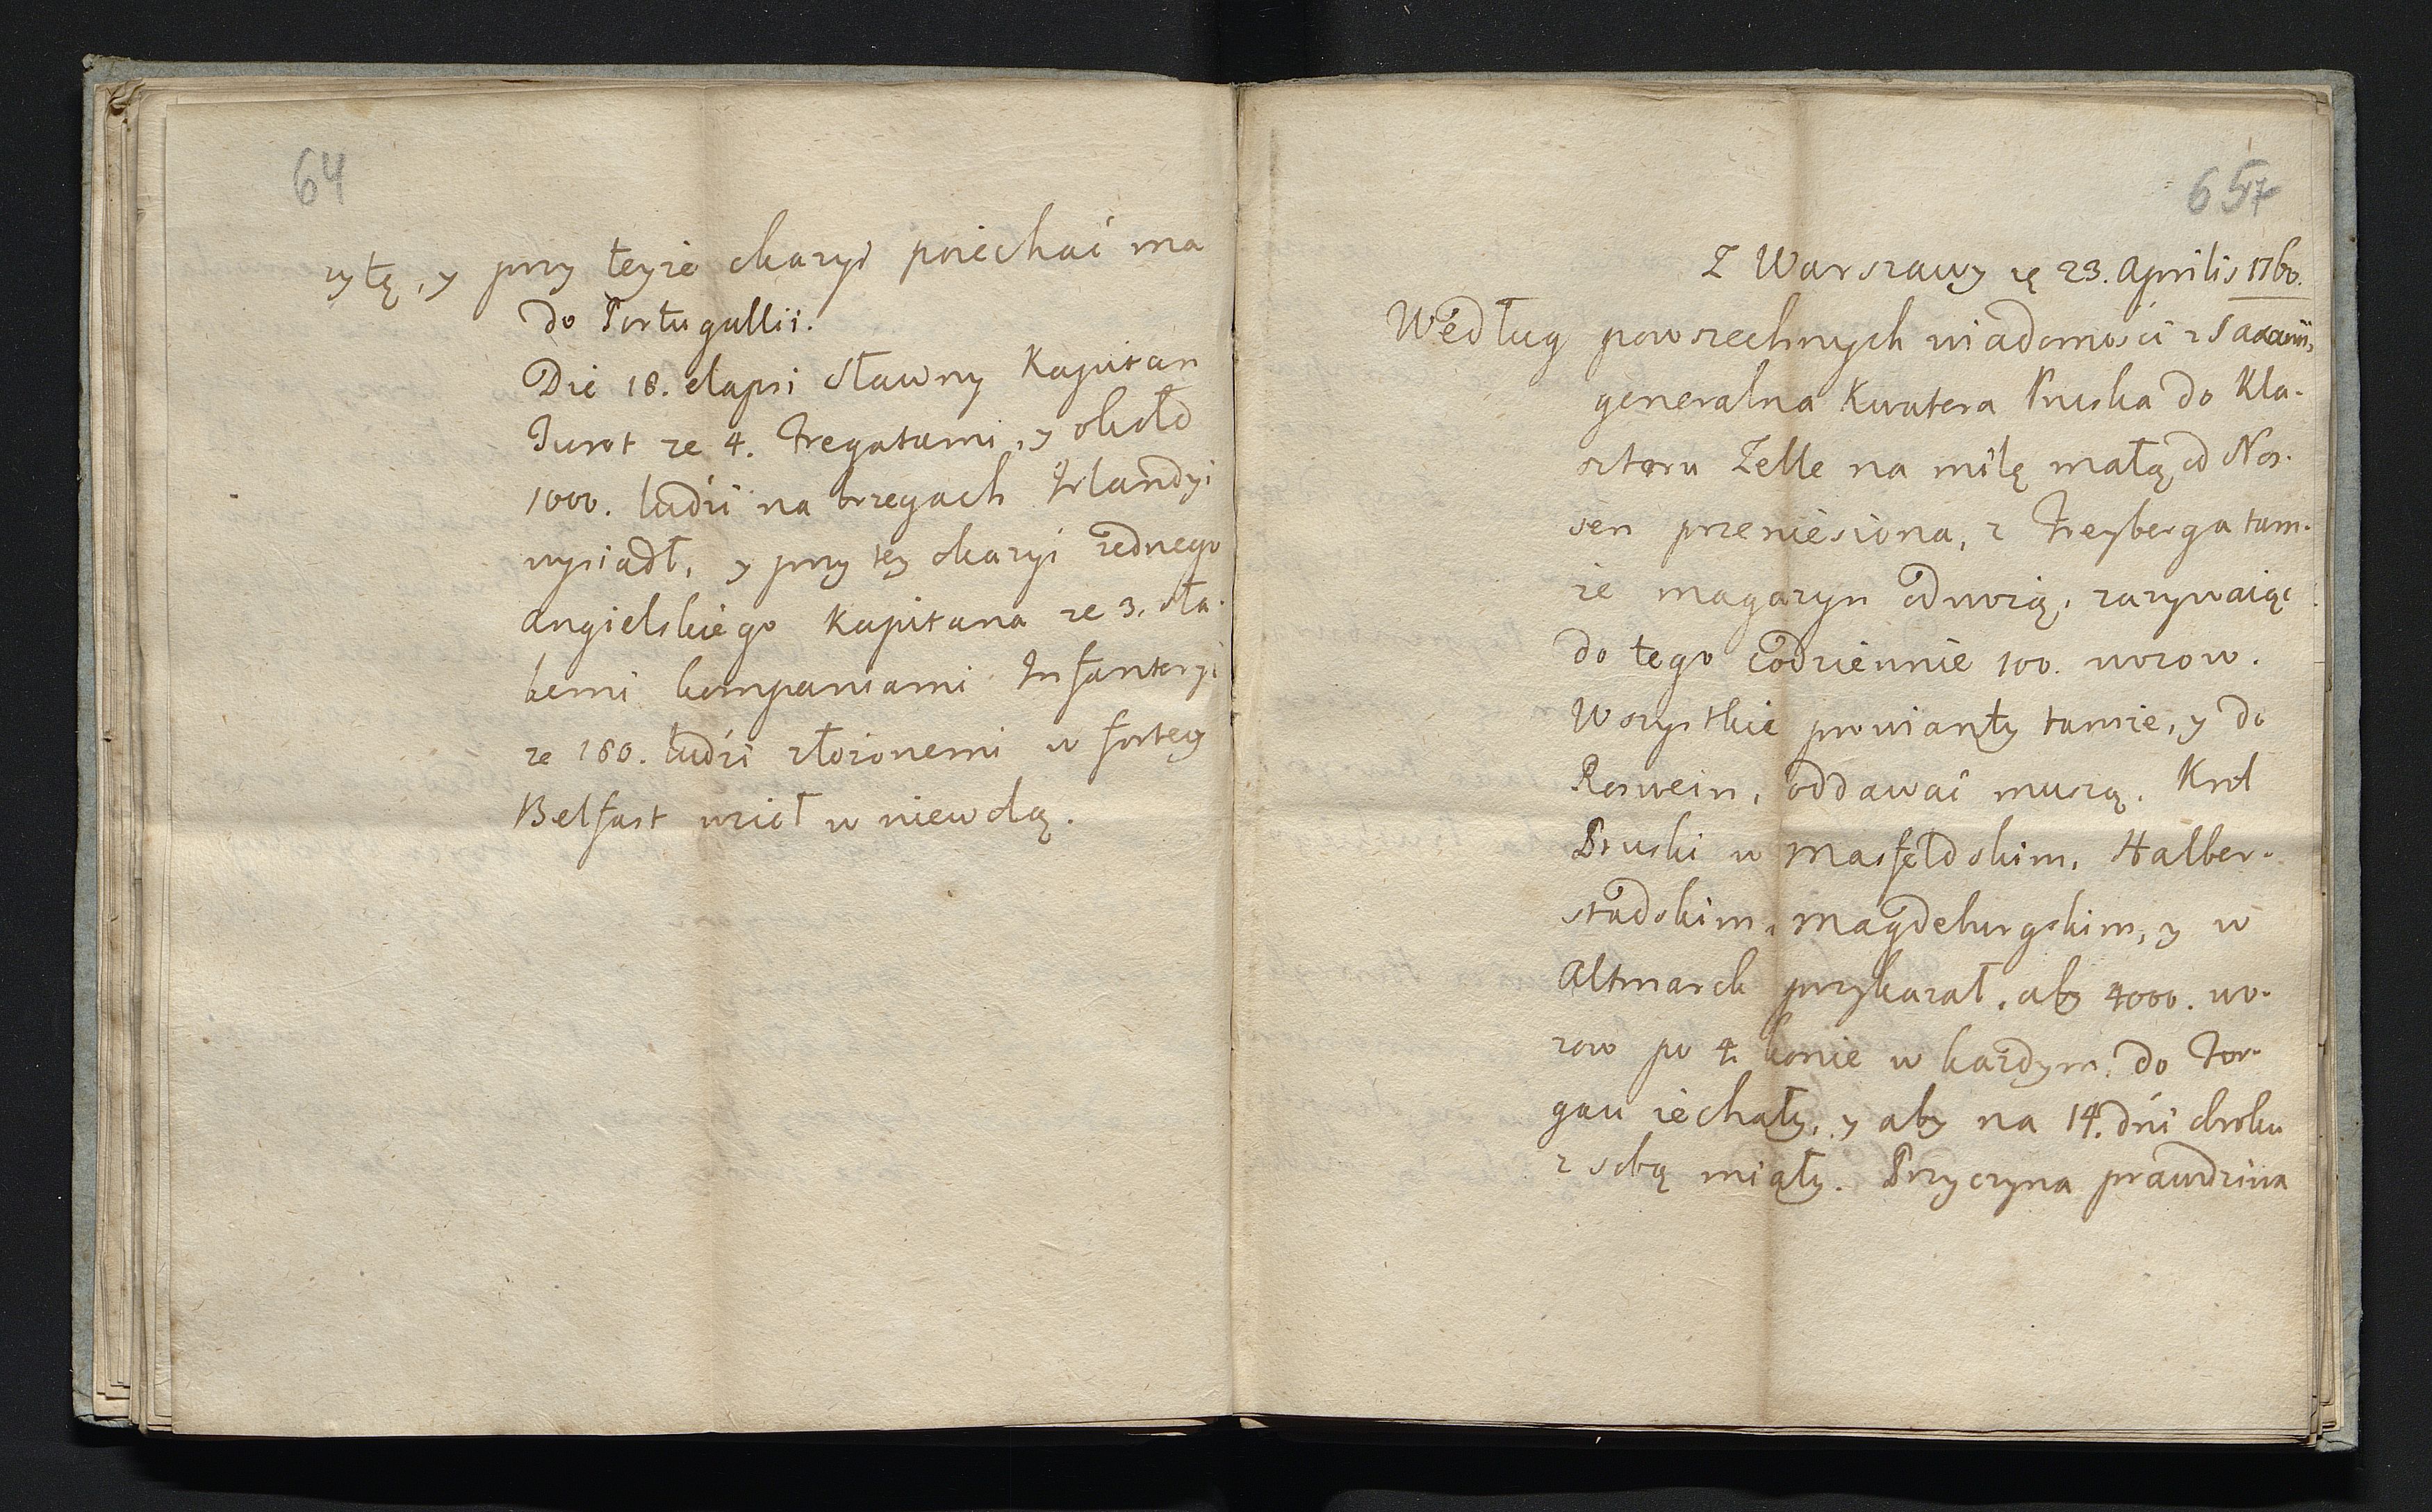 64
zytę, y przy teyże okazyi poiechać ma
do Portugallii.
Die 18. elapsi sławny Kapitan
Turot ze 4. Fregatami, y około
1000. ludzi na brzegach Irlandyi
wysiadł, y przy tey okazyi iednego
Angielskiego Kapitana ze 3. sła-
bemi kompaniami Infanteryi
ze 180. ludzi złożonemi w fortecy
Belfast wziął w niewolą.
65
Z Warszawy 23. Aprilis 1760.
Według powszechnych wiadomości z Saxonii,
generalna Kwatera Pruska do Kla-
sztoru Zelle na milę małą od Nos-
sen przeniesiona, z Freyberga tam-
że magazyn odwożą, zazywaiąc
do tego codziennie 100. wozow.
Wszystkie prowianty tamże, y do
Roswein, oddawać muszą. Krol
Pruski w Masfeldskim, Halber-
stadskim, Magdeburgskim, y w
Altmarck przykazał, aby 4000. wo-
zow po 4. konie w każdym, do Tor-
gau iechały, y aby na 14. dni obroku
z sobą miały. Przyczyna prawdziwa